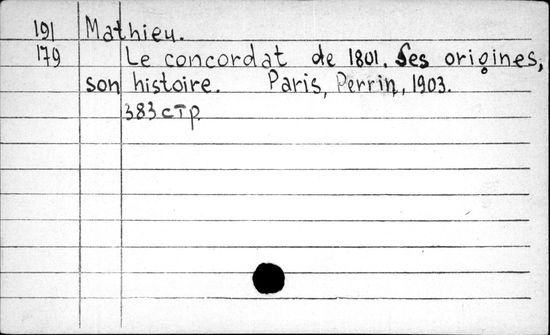 191 Mathieu.
179 Le concordat de 1801. Ses origines,
son histoire. Paris, Perrin, 1903.
383 стр.